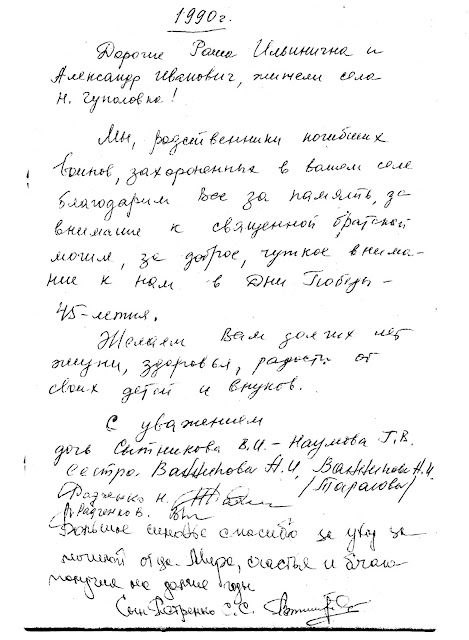 1990г.
Дорогие Раиса Ильинична и
Александр Иванович, жители села
Н. Чуполовка!
Мы, родственники погибших
воинов, захороненных в вашем селе
благодарим Вас за память, за
внимание к священной братской
могиле, за доброе, чуткое внима-
ние к нам в Дни Победы -
45-летия.
Желаем Вам долгих лет
жизни, здоровья, радости от
своих детей и внуков.
С уважением
дочь Ситникова В.И. - Наумова Г.В.
сестра Важинова А.И.
Радченко Н.
Радченко В.
Большое сыновье спасибо за уход за
могилой отца. Мира, счастья и благо
получия на долгие годы
Сын С.С.